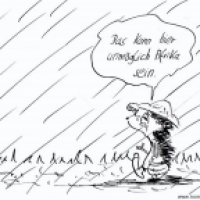 Das kann hier
unmöglich Afrika
sein.